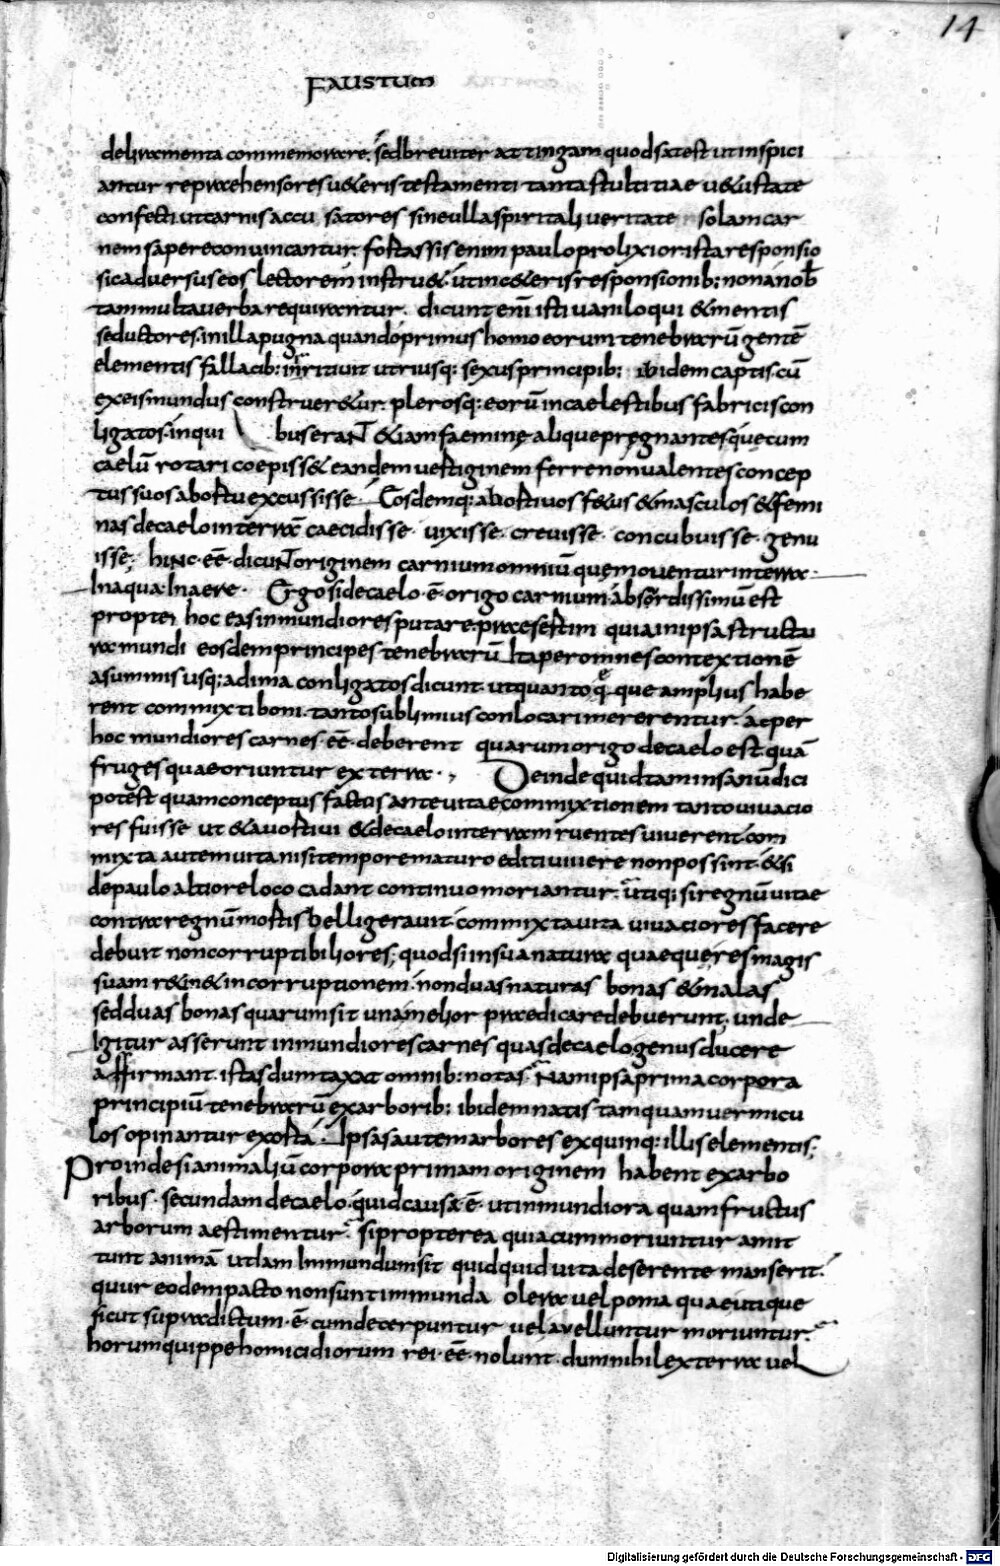 14
FAUSTUM
deliramenta commemorare. sed breviter attingam quod sat est ut inspici
antur repraehensores u&eris testamenti tanta stultitiae u&ustate
confecti ut carnis accu satores sine ulla spiritali veritate solam car
nem sapere convincantur. fortassis enim paulo prolixior ista responsio
sic adversus eos lectorem instru&. ut in c&eris responsionib: non a nob̄
tam multa verba requirantur. dicunt enī isti vaniloqui &mentis
seductores. in illa pugna quando primus homo eorum tenebrarū gentē
elementis fallacib: inritiuit utriusq: sexus principib: ibidem captis. cū
ex eis mundus construer&ur. plerosq: eorū in caelestibus fabricis con
ligatos. in qui buseraNT &iam faeminę aliquę pręgnantes. quę cum
caelū rotari coepiss& eandem vestiginem ferre non valentes concep
tus suos abortu excussisse. Eosdemq: abortivos f&us & masculos & femi
nas de caelo in terrā caecidisse. vixisse. crevisse. concubuisse. genu
isse; hiNc. eē. dicuNT originem carnium omniū quę moventur in terra.
In aqua. In aere. Ergo si de caelo. ē. origo carnium absordissimū est
propter hoc eas inmundiores putare. praesertim quia in ipsa structu
ra mundi eosdem principes tenebrarū Ita per omnes contextionē
a summis usq: ad ima conligatos dicunt. ut quanto q. que amplius habe
rent commixti boni. tanto sublimius conlocari mererentur. ac per
hoc mundiores carnes. eē. deberent quarum origo de caelo est. quā
fruges quae oriuntur ex terra., Deinde quid tam insanū dici
potest quam conceptus factus ante vitae commixtionem tanto vivacio
res fuisse ut & avortivi & de caelo in terram ruentes viverent. com
mixta autem vita nisi tempore maturo editi vivere non possint. & si
de paulo altiore loco cadant continuo moriantur. utiq: si regnū vitae
contra regnū mortis belligeravit. commixta vita vivaciores facere
debuit non corruptibiliores; quod si in sua natura quaequę res magis
suam r&in& incorruptionem. non duas naturas bonas & malas
sed duas bonas quarum sit una melior praedicare debuerunt, unde
Igitur asserunt inmundiores carnes quas de caelo genus ducere
affirmant. istas dumtaxat omnib: notas. Nam ipsa prima corpora
principiū tenebrarū ex arborib: ibidem natis tamquam vermicu
los opinantur exorta. Ipsas autem arbores ex quinq: illis elementis;
Proinde si animaliū corpora primam originem habent ex arbo
ribus. secundam de caelo. quid causae. ē. ut inmundiora quam fructus
arborum aestimentur. si propterea quia cum moriuntur amit
tunt animā ut Iam Immundum sit quidquid vita deserente manserit.
quur eodem pacto non sunt immunda olera vel poma quae utique
sicut supra dictum. ē. cum decerpuntur vel avelluntur moriuntur.
horum quippe homicidiorum rei. eē. nolunt. dum nihil ex terra vel
Digitalisierung gefördert durch die Deutsche Forschungsgemeinschaft - DFG